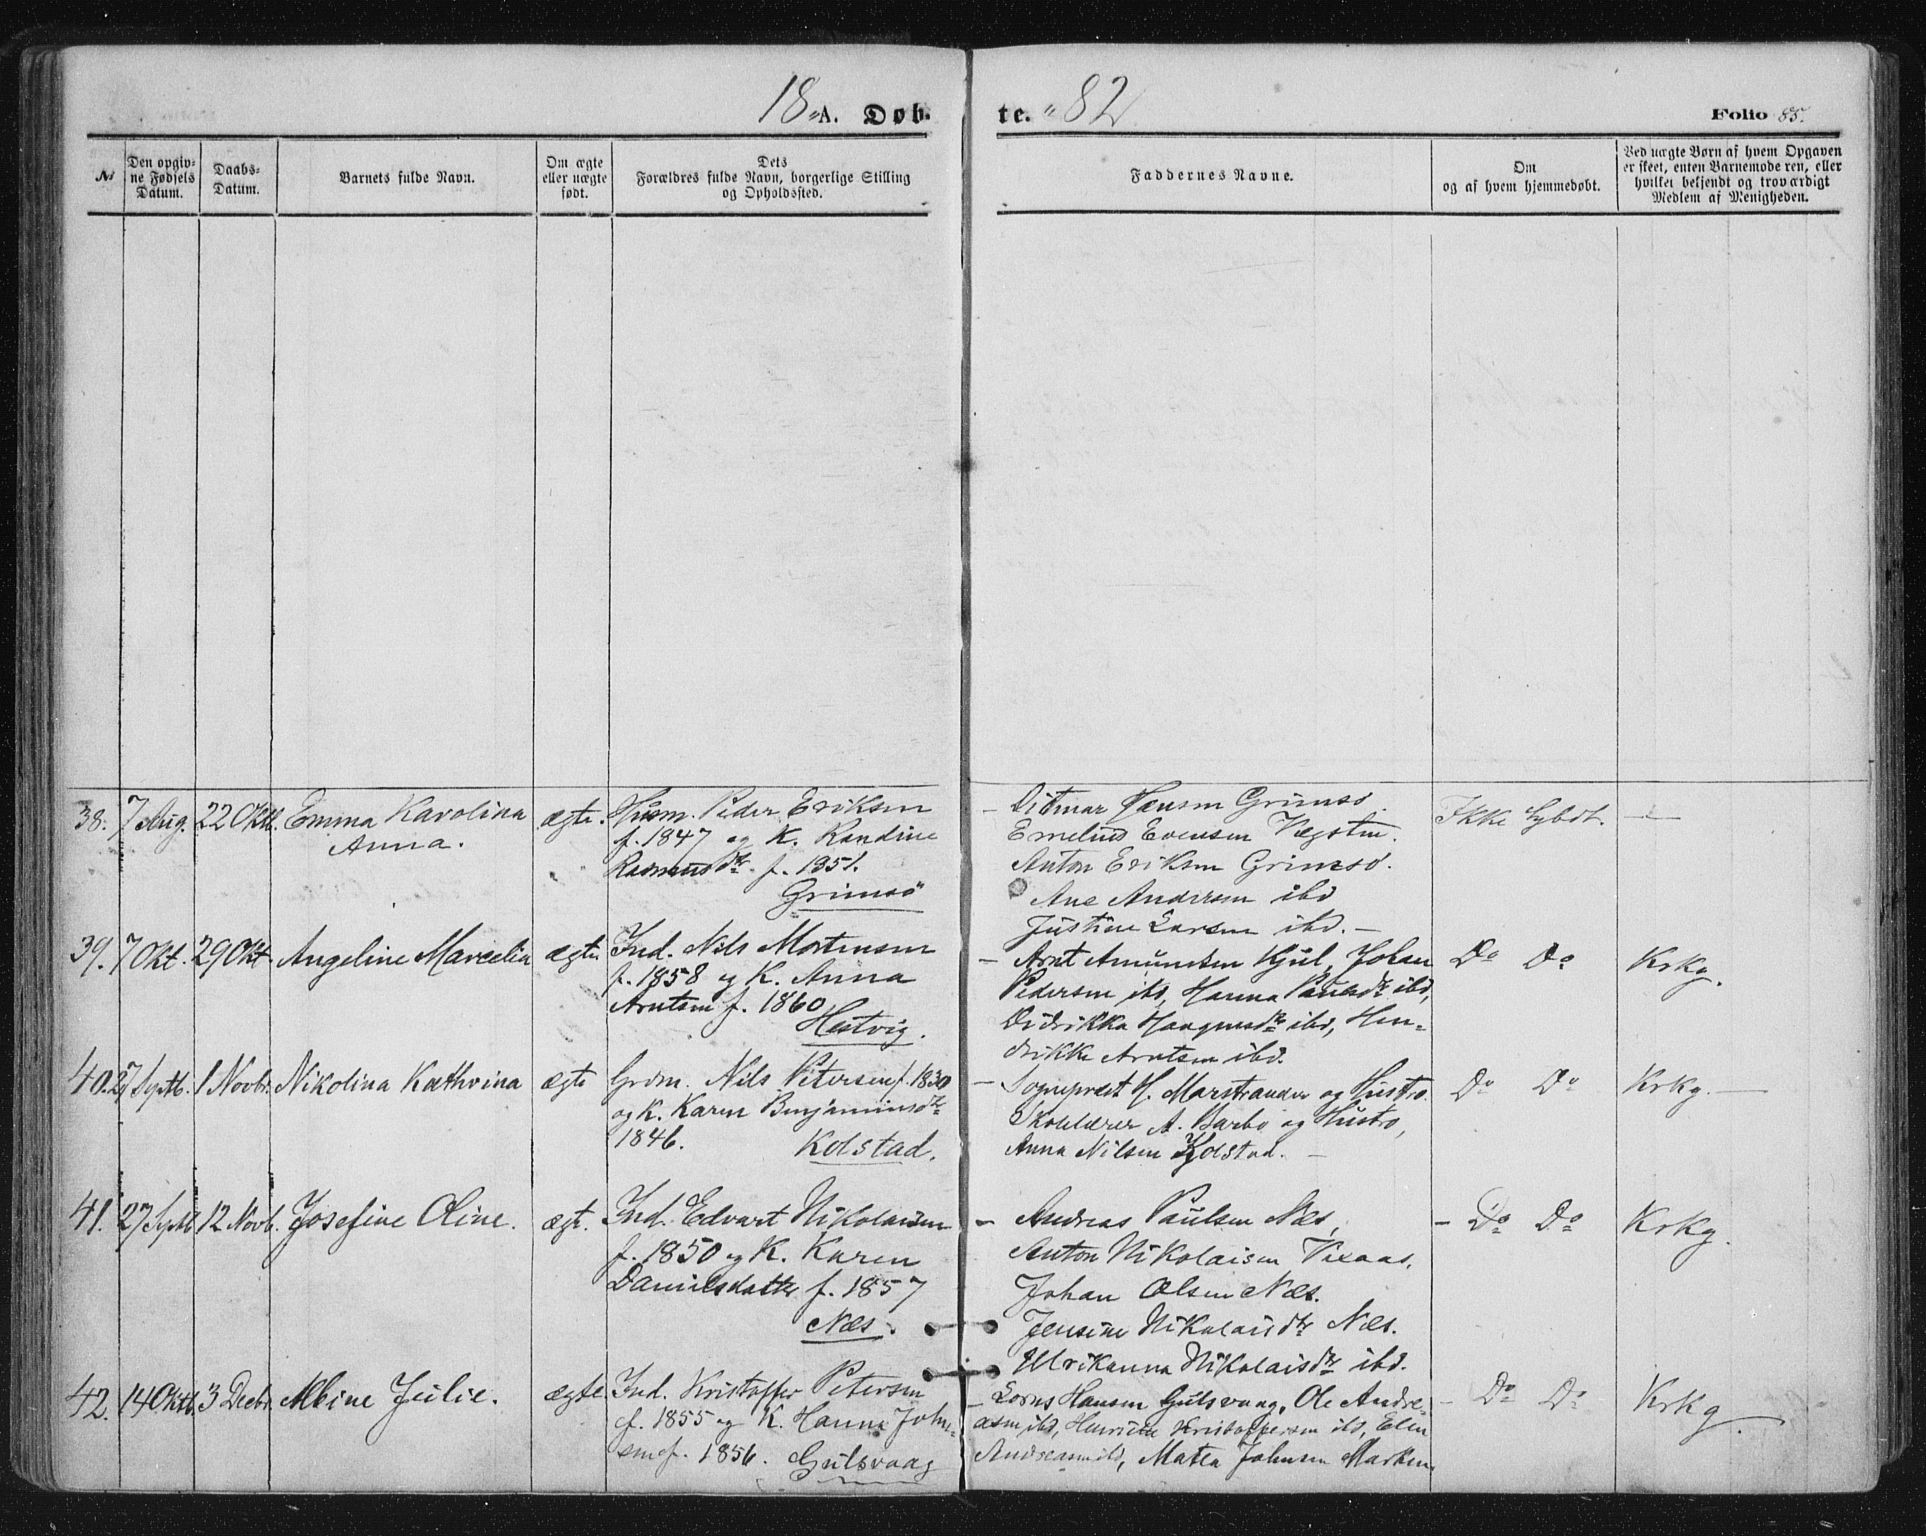 18 A. Døb-
te. 82
Folio 85.
№
Den opgiv-
ne Fødsels
Datum.
Daabs-
Datum.
Barnets fulde Navn.
Om ægte
eller uægte
født.
Dets
Forældres fulde Navn, borgerlige Stilling
og Opholdssted.
Faddernes Navne.
Om
og af hvem hjemmedøbt.
Ved uægte Børn af hvem Opgaven
er skeet, enten Barnemoderen, eller
hvilket bekjendt og troværdigt
Medlem af Menigheden.
38. 7 Aug. 22 Oktb. Emma Karolina
Anna.
ægte.
Husm. Peder Eriksen
f. 1847 og K. Randine
Rasmusdtr. f. 1851.
Grimsö
Ditmar Hansen Grimsö
Evensen Vegsten.
Anton Eriksen Grimsö.
Ane Andersen ibd
Justine Larsen ibd. –
Ikke
39. 7 Okt. 29 Okt. Angeline Marcelia
ægte.
Ind. Nils Mortensen
f. 1858 og K. Anna
Arntsen f. 1860
Hestvig.
– Arnt Amundsen Kjul, Johan
Pedersen ibd, Hanna Paulsdtr ibd,
Didrikka Haagensdtr ibd, Hen-
drikke Arntsen ibd.
Do Do
Krkg.
40. 27 Septb. 1 Novbr. Nikolina Kathrina
ægte
Grdm. Nils Petersen f. 1830
og K. Karen Benjaminsdtr
1846. Kolstad.
– Sogneprest H. Marstrander og Hustro.
Skolelærer A. Barbo og Hustro,
Anna Nilsen Kolstad. –
Do Do
Krkg. –
41. 27 Septb 12 Novb. Josefine Oline.
ægte.
Ind. Edvart Nikolaisen
f. 1850 og K. Karen
Danielsdatter f. 1857
Næs.
– Andreas Paulsen Næs,
Anton Nikolaisen Vixaas.
Johan Olsen Næs.
Jensine Nikolaisdtr Næs.
Ulrikanna Nikolaisdtr ibd.
– Do Do
Krkg.
42. 14 Oktb. 3 Decbr. Albine Julie.
ægte
Ind. Kristoffer Petersen
f. 1855 og K. Hanna John-
sen f. 1856. Gulsvaag
– Hansen Gulsvaag, Ole Andre-
asen ibd, Henriette Kristoffersen ibd, Elen
Andreasen ibd, Matea Johnsen Marken.
– Do Do
Krkg.